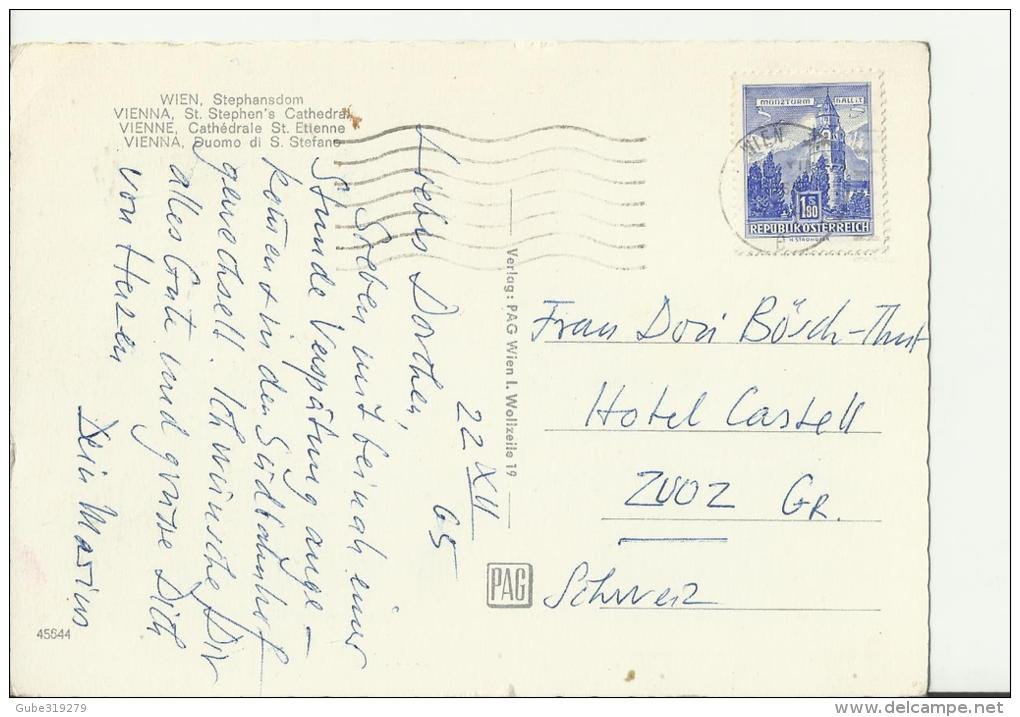 WIEN, Stephansdom
VIENNA, St. Stephen's Cathedral
VIENNE, Cathédrale St. Etienne
VIENNA, Duomo di S. Stefano
22 XII 65
Liebes Dorthen,
Soeben mit beinah einer
Stunde Verspätung ange-
kommen & in den Südbahnhof
gewechselt. Ich wünsche Dir
alles Gute und grüsse Dich
von Herzen
Dein Marius
45644
Verlag: PAG Wien I. Wollzeile 19
PAG
MÜNZTURM HALL i.T.
S
1.80
REPUBLIK ÖSTERREICH
WIEN
Frau Dori Bösch-Thut
Hotel Castell
ZUOZ GR.
Schweiz
Gube319279
delcampe.net